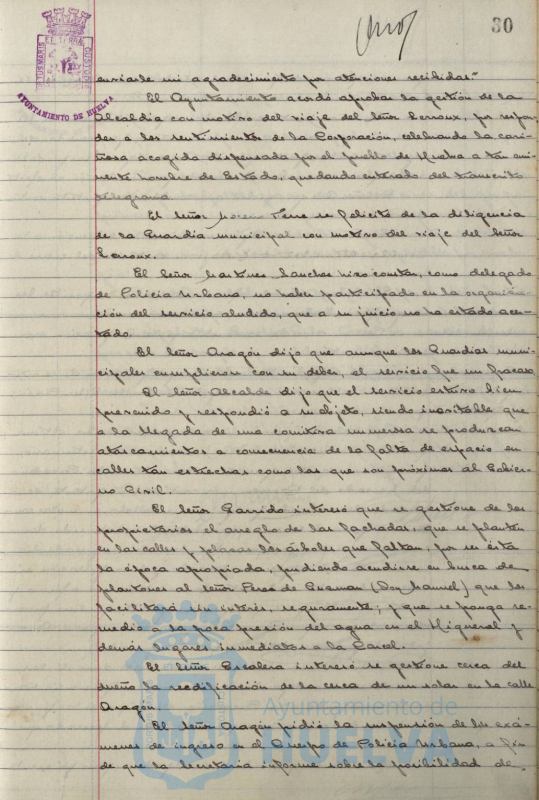 30
EL TERRÆ
CUSTODIA
AYUNTAMIENTO DE HUELVA
enviarle mi agradecimiento por atenciones recibidas"
El Ayuntamiento acordó aprobar la gestión de la
Alcaldía con motivo del viaje del Señor Lerroux, por respon-
der a los sentimientos de la Corporación, celebrando la cari-
ñosa acogida dispensada por el pueblo de Huelva a tan emi-
nente hombre de Estado, quedando enterado del transcrito
telegrama.
El Señor Moreno se felicitó de la diligencia
de la Guardia municipal con motivo del viaje del Señor
Lerroux.
El Señor Martínez Sánchez hizo constar, como delegado
de Policía Urbana, no haber participado en la organiza-
ción del servicio aludido, que a su juicio no ha estado acer-
tado.
El Señor Aragón dijo que aunque los Guardias muni-
cipales cumplieron con su deber, el servicio fue un fracaso.
El Señor Alcalde dijo que el servicio estuvo bien
prevenido y respondió a su objeto, siendo inevitable que
a la llegada de una comitiva inmensa se produzcan
atascamientos a consecuencia de la falta de espacio en
calles tan estrechas como las que son próximas al Gobier-
no Civil.
El Señor Garrido interesó que se gestione de los
propietarios el arreglo de las fachadas, que se planten
en las calles y plazas los árboles que faltan, por ser ésta
la época apropiada, pudiendo acudirse en busca de
plantones al Señor Perez de Guzman (Don Manuel) que los
facilitará sin interés, seguramente; y que se ponga re-
medio a la poca presión del agua en el Higueral y
demás lugares inmediatos a la Carcel.
El Señor Escalera interesó se gestione cerca del
dueño la reedificación de la cerca de un solar en la calle
Aragón.
El Señor Aragón pidió la suspensión de los exá-
menes de ingreso en el Cuerpo de Policía Urbana, a fin
de que la Secretaría informe sobre la posibilidad de
Ayuntamiento de
HUELVA